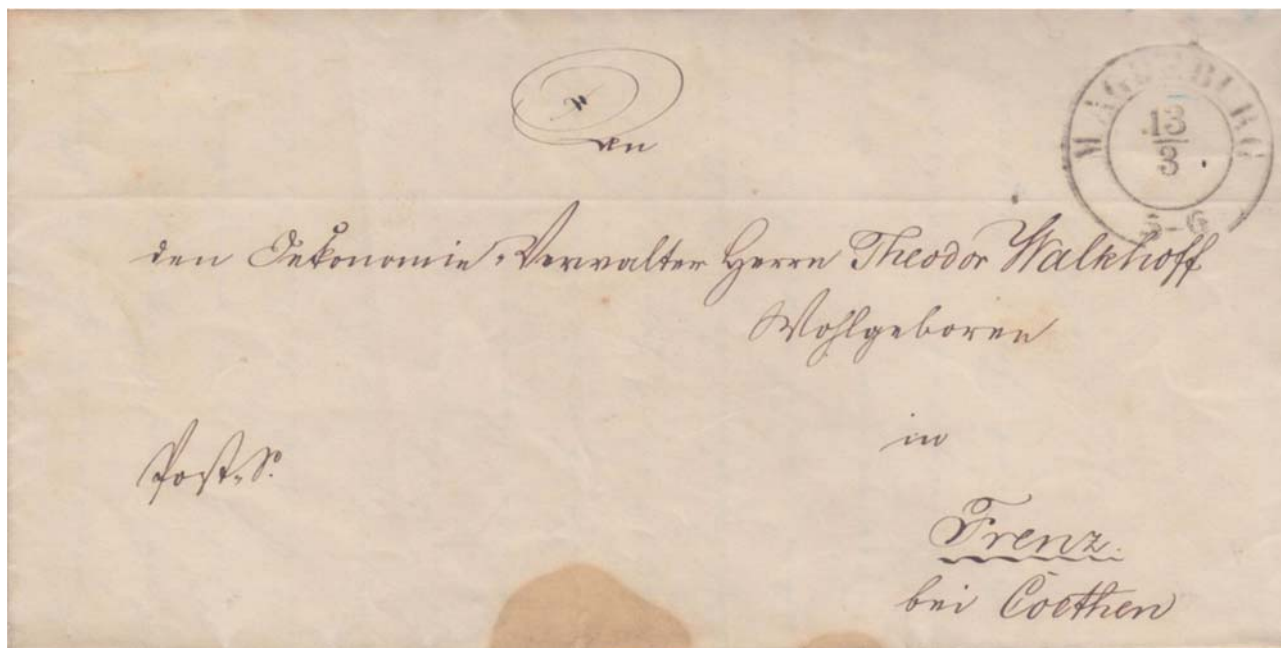 MAGDEBURG
13
3
An
den Oekonomie-Verwalter Herrn Theodor Walkhoff
Wohlgeboren
in
Frenz.
bei Coethen